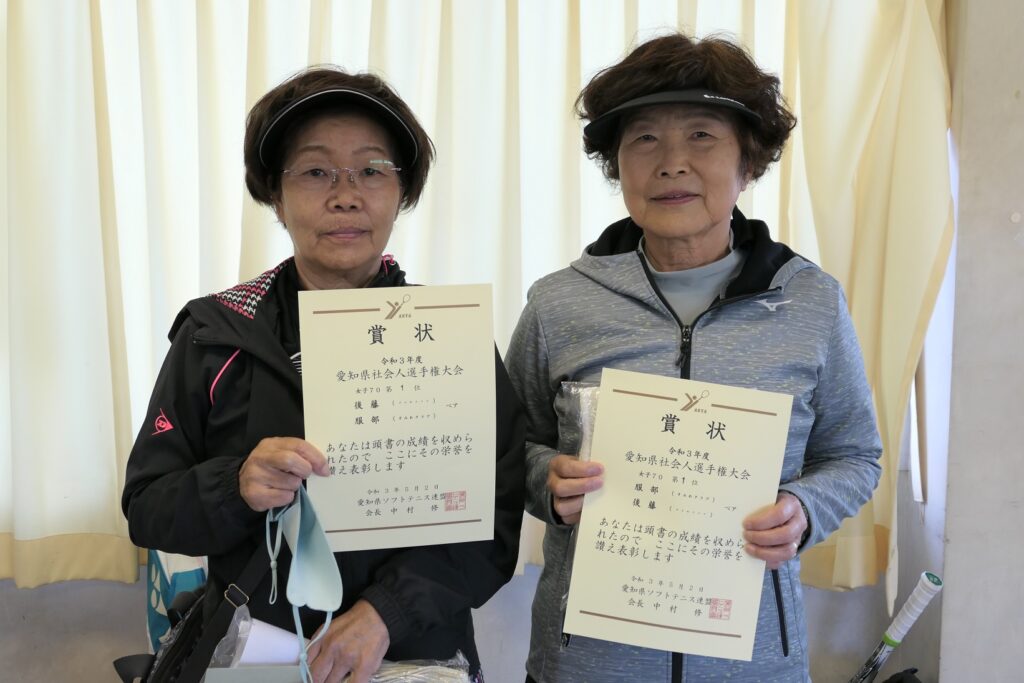 ASTA
賞状
令和3年度
愛知県社会人選手権大会
女子70 第1位
後藤
ペア
服部
あなたは頭書の成績を収めら
れたので ここにその栄誉を
讃え表彰します
令和3年5月2日
愛知県ソフトテニス連盟
会長 中村 修
ASTA
賞状
令和3年度
愛知県社会人選手権大会
女子70 第1位
服部
ペア
後藤
あなたは頭書の成績を収めら
れたので ここにその栄誉を
讃え表彰します
令和3年5月2日
愛知県ソフトテニス連盟
会長 中村 修